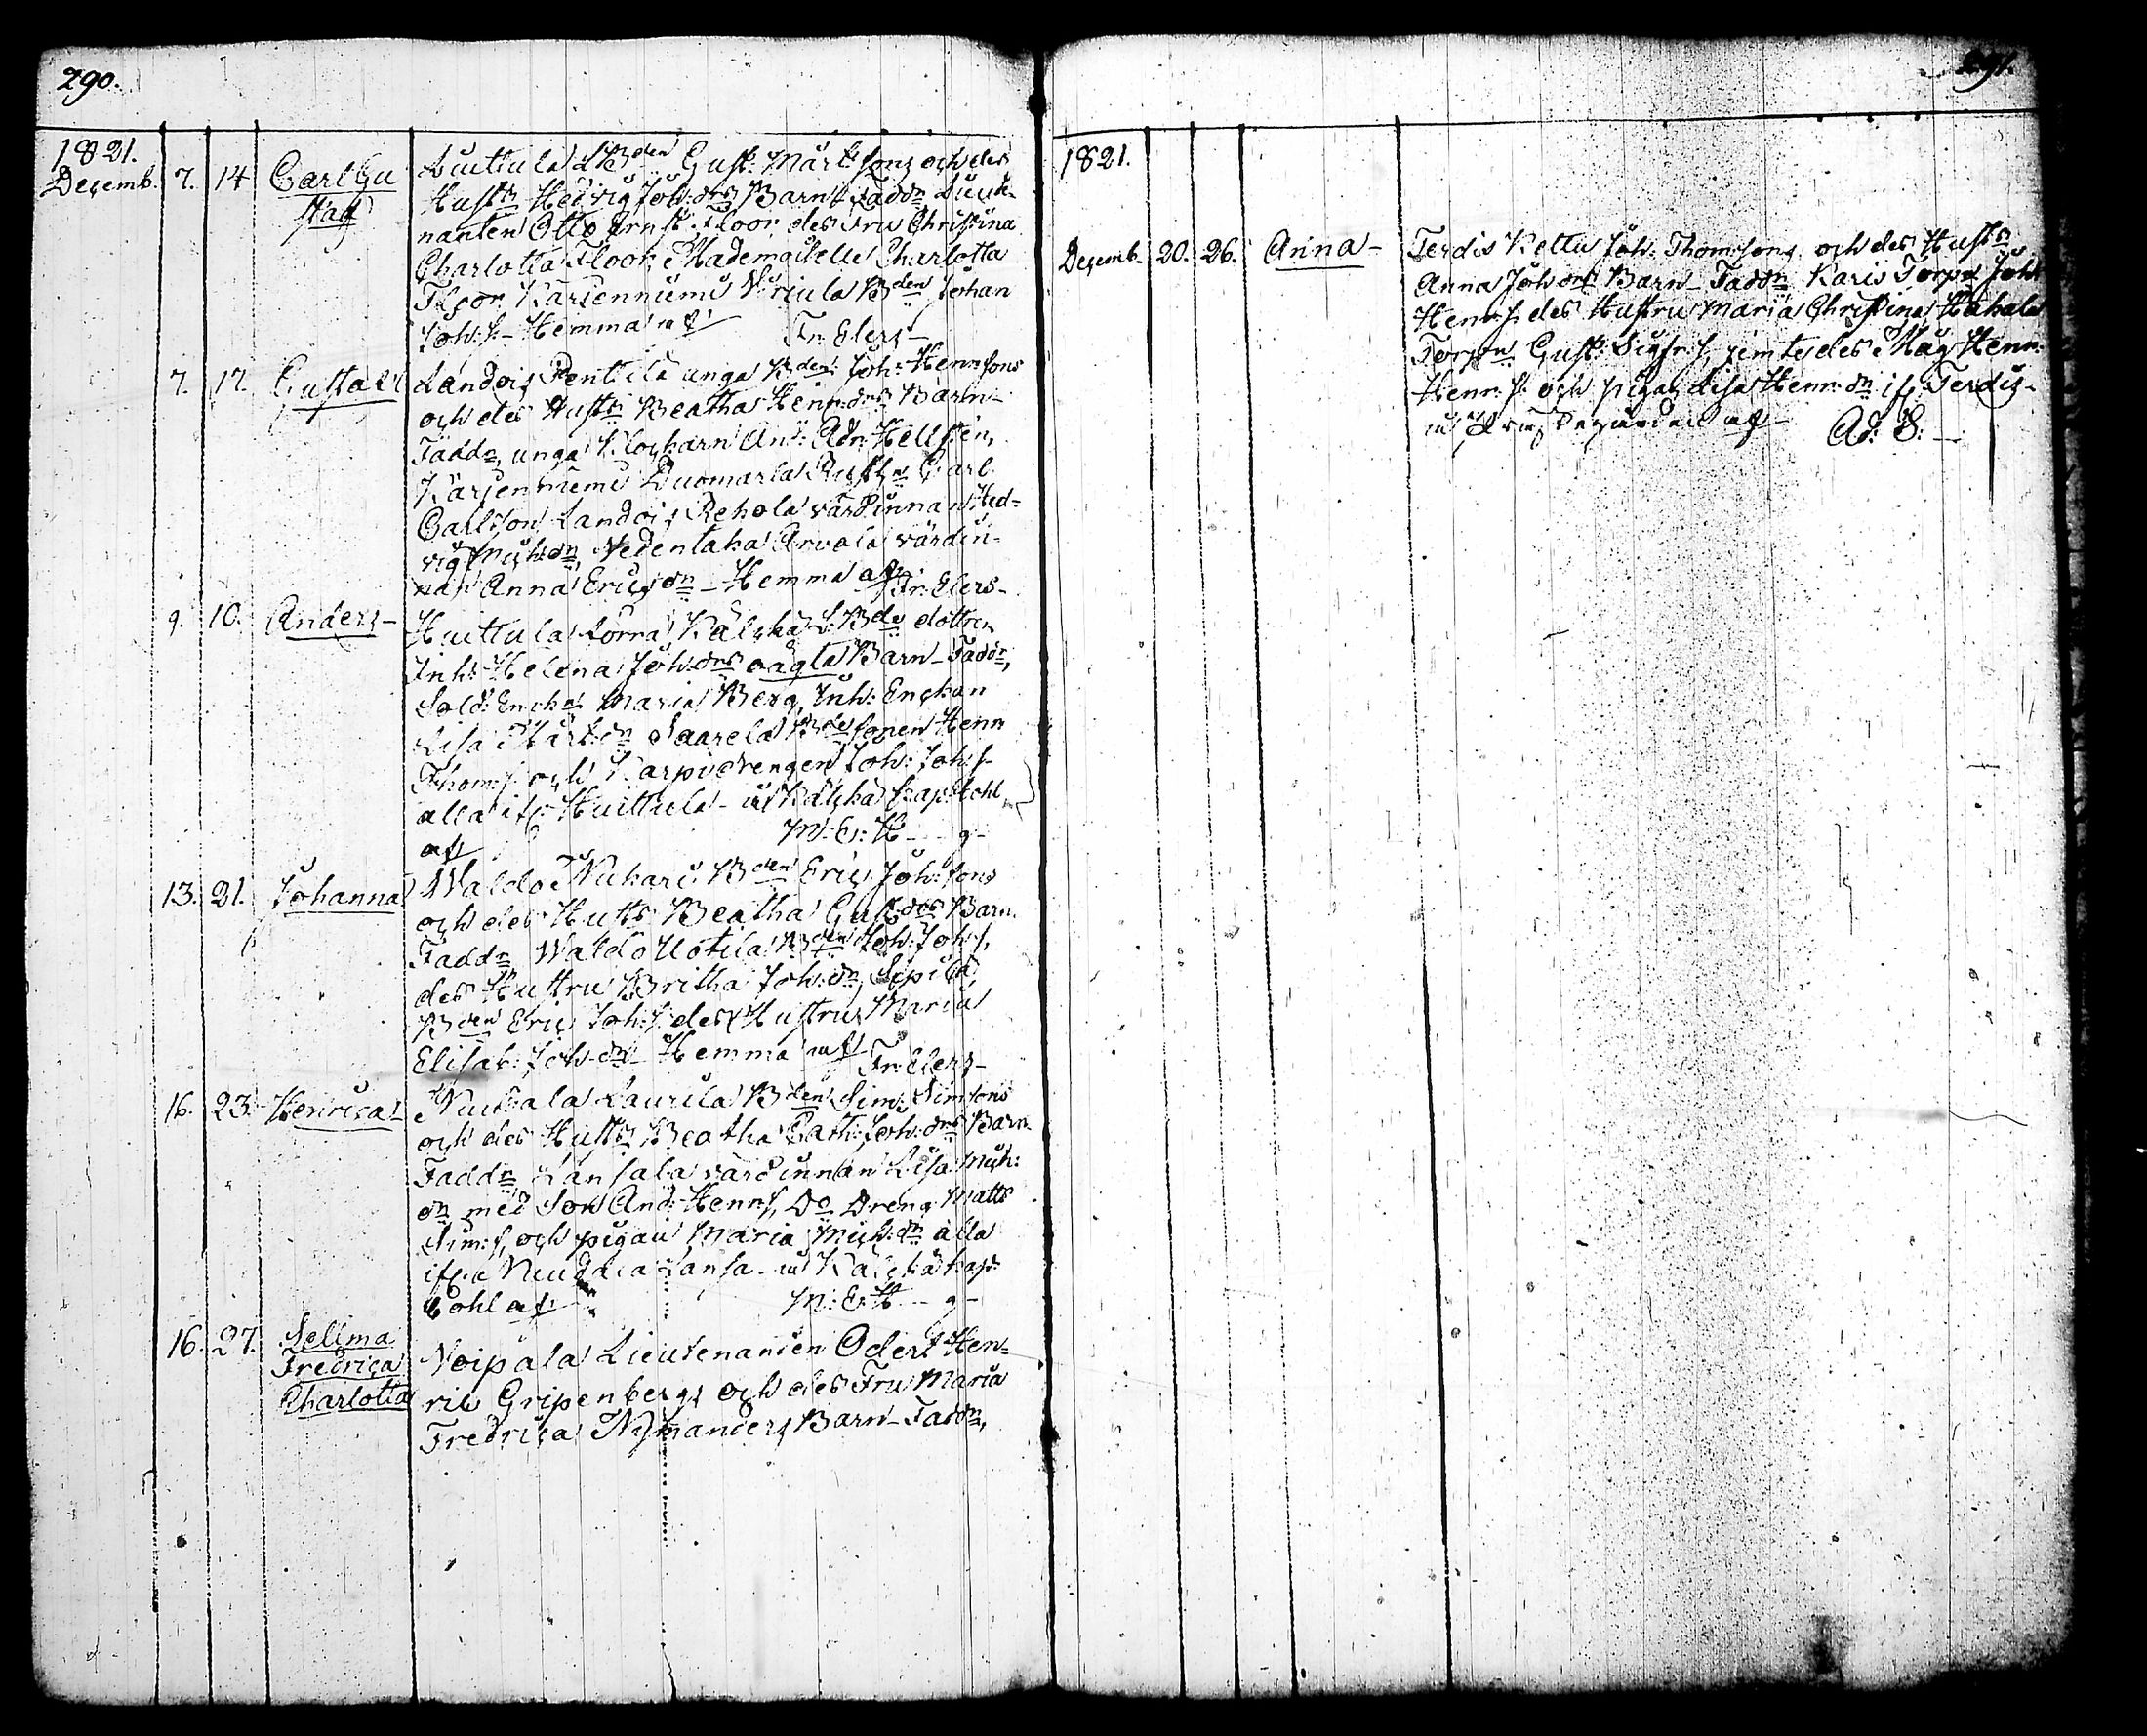 290.
1821.
Decemb. 7. 14 Carl Gustaf
Luttula Bden Gust: Mårtsons och des
Hustr Hedvig Joh:drs Barn Faddr Lieute-
nanten Otto Ernst Floor des Fru Christina
Charlotta Floor, Mademoiselle Charlotta
Floor, Karjenniemi Bden Johan
Joh:s. - Hemma af Fr: Elers -
7. 17. Gustaf
Landois Penttilä unga Bden Joh: Henrsons
och des Hustr Beatha Henr:drs Barn -
Faddr, unga Klockarn And: Adr: Hellsten,
Karjenniemi Duomarla Rustn Carl
Carlson Landois Rehola värdinnan Hed-
vig Mich:dr, Vedentaka Arvola värdin-
nan Anna Ericsdr - Hemma af Fr: Elers -
9. 10. Anders -
Huittula Lörna Kälska Bde dottren
Inh: Helena Joh:drs oägta Barn - Faddr,
Sold: Enckan Maria Berg, Inh: Enckan
Lisa Mårt:dr Saarela Bde sonen Henr
Thom:s och Karpi drengen Joh: Joh:s.
alla if. Huittula - uti Kälskä Cap: Kohl
af M: E: H - g -
13. 21. Johanna
Waldo Nickari Bden Eric Joh:sons
och des Hustr Beatha Gust:drs Barn.
Faddr Waldo Uotila Bden Joh: Joh:s,
des Hustru Britha Joh:dr, Sipilä
Bden Eric Joh:s. des Hustru Maria
Elisab: Joh:dr - Hemma af Fr: Elers -
16. 23. Henrica -
Laurila Bden Sim: Simsons
och des Hustr Beatha Cath: Joh:drs Barn.
Faddr Lansala värdinnan Lisa Mich:
dr med Son And: Henr:s, Do Dreng Matts
Sim:s, och pigan Maria Mich:dr alla
if. Lansa - uti Kälskä kap:
Kohl af M: E: H - g -
16. 27. Sellma Fredrica Charlotta
Voipala Lieutenanten Odert Hen-
ric Gripenbergs och des Fru Maria
Fredrica Nymanders Barn - Faddr,
291.
1821.
Decemb. 20. 26. Anna -
Terdis Kettu Joh: Thomsons och des Hustr
Anna Joh:drs Barn - Faddr Karis Torpn Joh:
Henr:s. des Hustru Maria Christina Hakala
Torpn Gust: Sigfr:s, jemte des Måg Henr:
Henr:s. och pigan Lisa Henr:dr if. Terdis -
af Ad: S: -